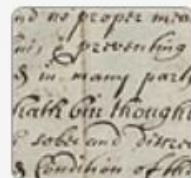 nd no proper mea
preventing
in many part
hath bin thought
sober and discre
Condition of the